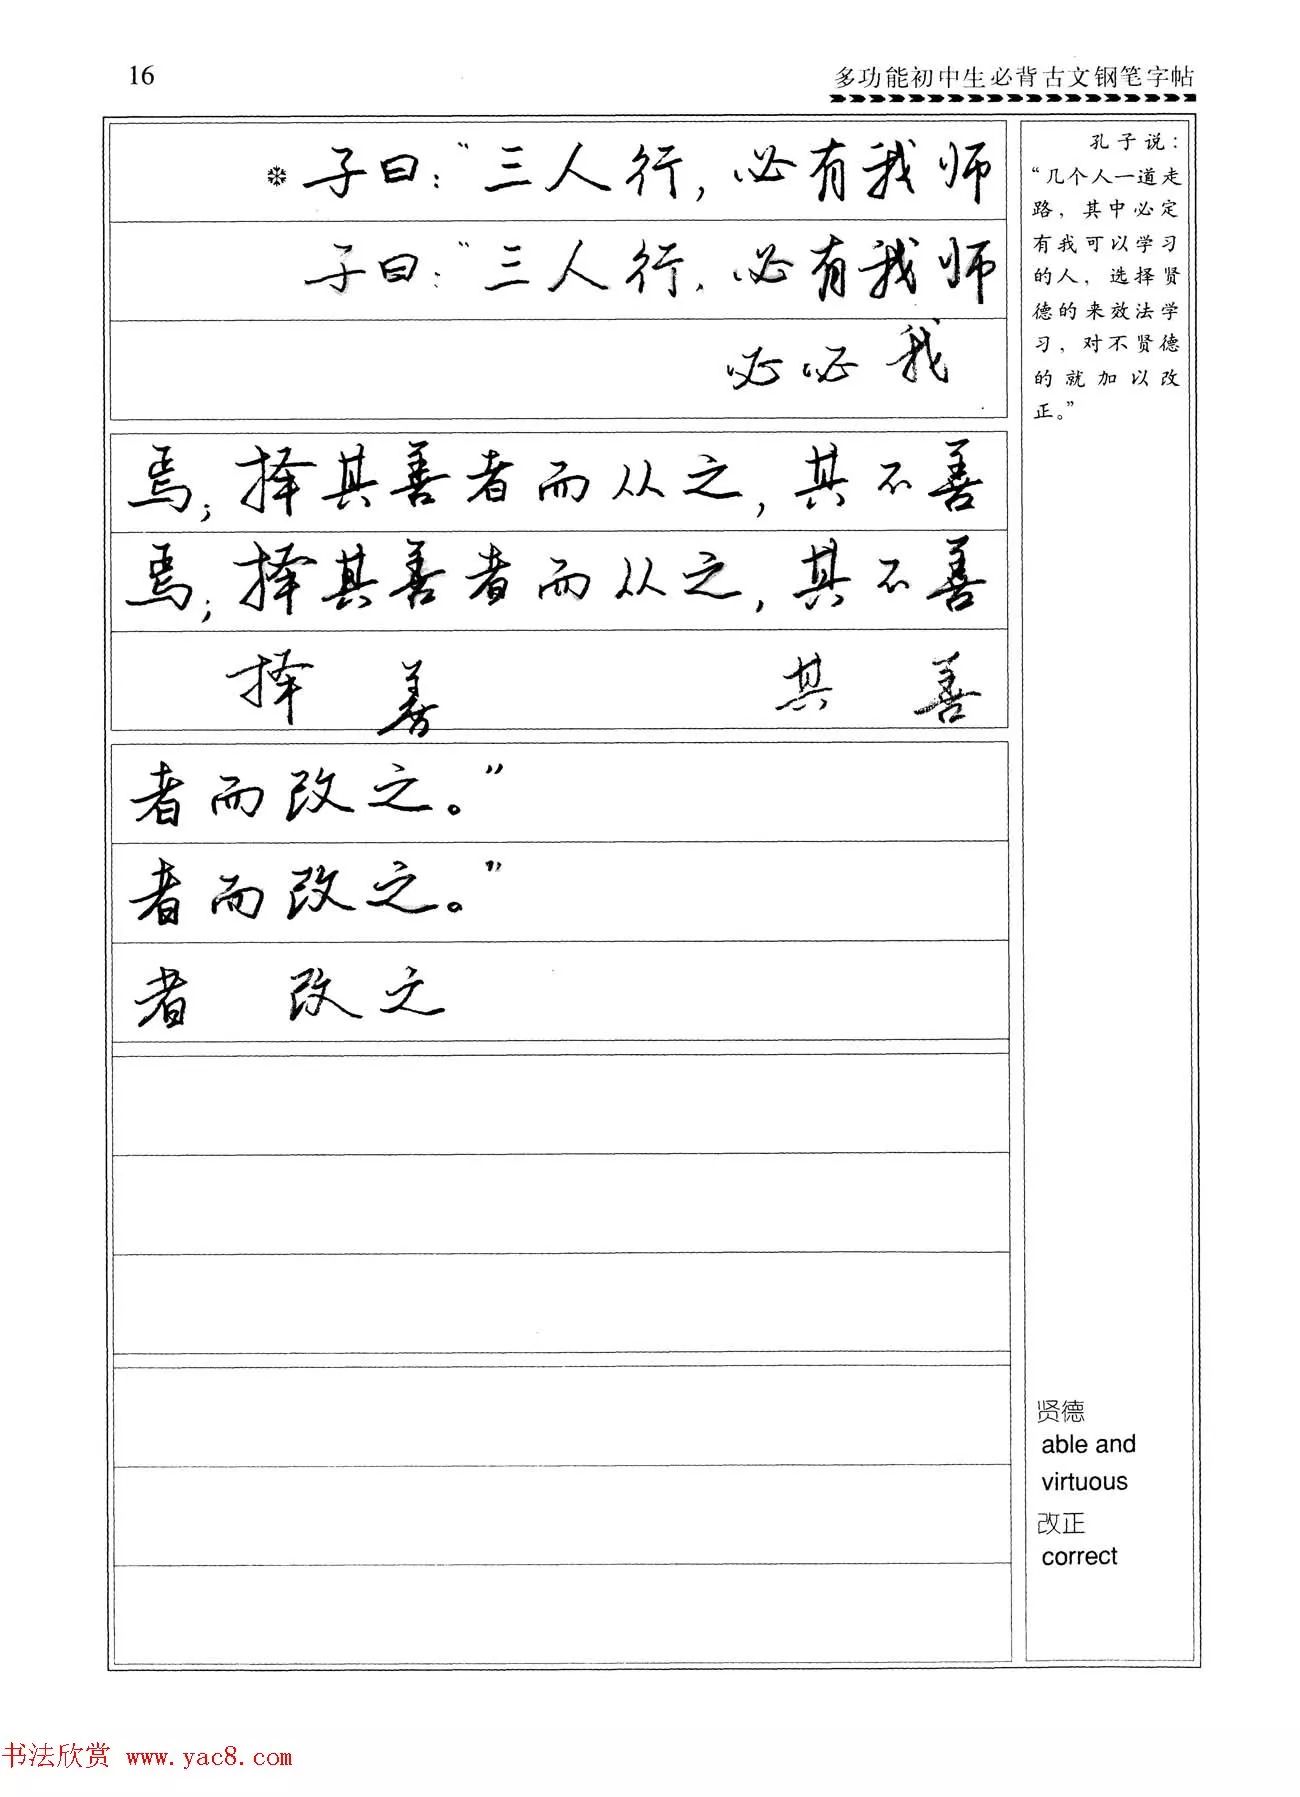 16
多功能初中生必背古文钢笔字帖
❄子曰：“三人行，必有我师
子曰：“三人行，必有我师
必必我
焉；择其善者而从之，其不善
焉；择其善者而从之，其不善
择 善 其 善
者而改之。”
者而改之。”
者 改之
孔子说：
“几个人一道走
路，其中必定
有我可以学习
的人，选择贤
德的来效法学
习，对不贤德
的就加以改
正。”
贤德
able and
virtuous
改正
correct
书法欣赏 www.yac8.com